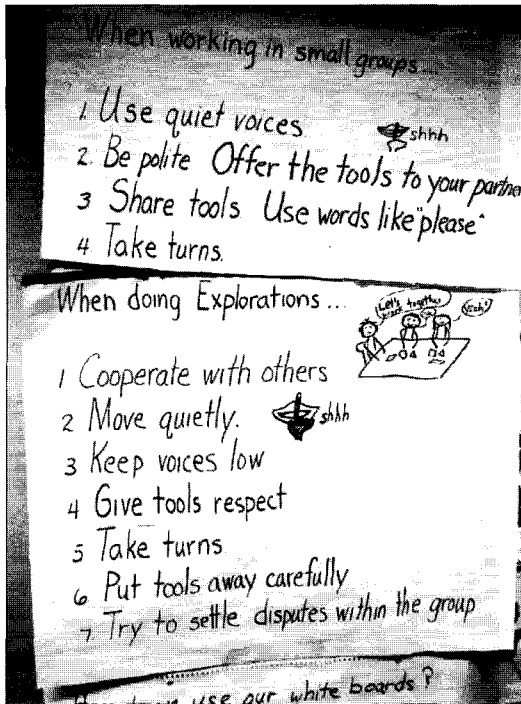 When working in small groups...
1. Use quiet voices
shhh
2. Be polite Offer the tools to your partner
3 Share tools Use words like "please"
4 Take turns.
When doing Explorations...
Let's work together
Yeah!
1 Cooperate with others
2 Move quietly.
shhh
3 Keep voices low
4 Give tools respect
5 Take turns
6 Put tools away carefully
7 Try to settle disputes within the group
use our white boards?